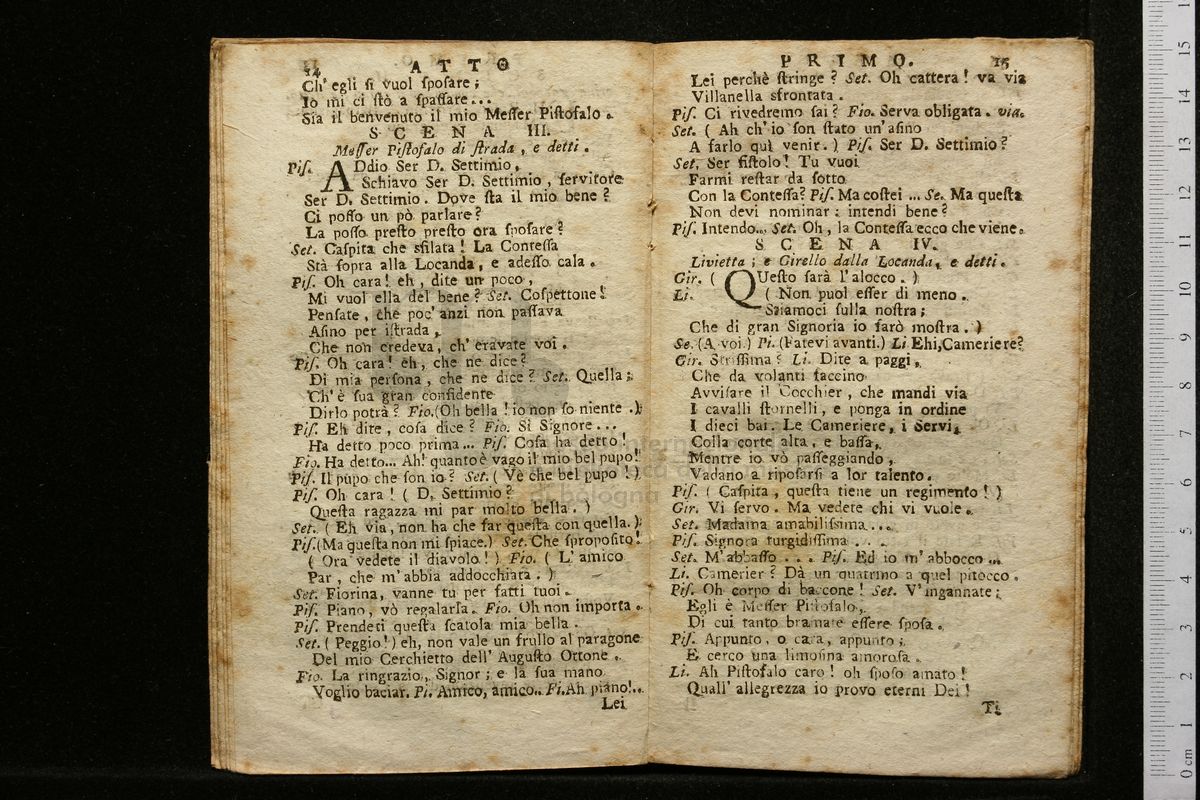 14 ATTO
Ch' egli ſi vuol ſpoſare;
Io mi ci ſtò a ſpaſſare...
Sia il benvenuto il mio Meſſer Piſtofalo.
SCENA III.
Meſſer Piſtofalo di ſtrada, e detti.
Piſ. ADdio Ser D. Settimio,
Schiavo Ser D. Settimio, ſervitore
Ser D. Settimio. Dove ſta il mio bene?
Ci poſſo un pò parlare?
La poſſo preſto preſto ora ſpoſare?
Set. Caſpita che sfilata! La Conteſſa
Stà ſopra alla Locanda, e adeſſo cala.
Piſ. Oh cara! eh, dite un poco,
Mi vuol ella del bene? Set. Coſpettone!
Penſate, che poc' anzi non paſſava
Aſino per iſtrada,
Che non credeva, ch' eravate voi.
Piſ. Oh cara! eh, che ne dice?
Di mia perſona, che ne dice? Set. Quella;
Ch' è ſua gran confidente
Dirlo potrà? Fio. (Oh bella! io non ſo niente.)
Piſ. Eh dite, coſa dice? Fio. Sì Signore...
Ha detto poco prima... Piſ. Coſa ha detto!
Fio. Ha detto... Ah! quanto è vago il mio bel pupo!
Piſ. Il pupo che ſon io? Set. (Ve che bel pupo!)
Piſ. Oh cara! (D. Settimio?
Queſta ragazza mi par molto bella.)
Set. (Eh via, non ha che far queſta con quella.)
Piſ. (Ma queſta non mi ſpiace.) Set. Che ſpropoſito!
(Ora vedete il diavolo!) Fio. (L' amico
Par, che m' abbia addocchiata.)
Set. Fiorina, vanne tu per fatti tuoi.
Piſ. Piano, vò regalarla. Fio. Oh non importa.
Piſ. Prendeti queſta ſcatola mia bella.
Set. (Peggio!) eh, non vale un frullo al paragone
Del mio Cerchietto dell' Auguſto Ottone.
Fio. La ringrazio, Signor; e la ſua mano
Voglio baciar. Pi. Amico, amico.. Fi. Ah piano!..
Lei
PRIMO. 15
Lei perchè ſtringe? Set. Oh cattera! va via
Villanella sfrontata.
Piſ. Ci rivedremo ſai? Fio. Serva obligata. via.
Set. (Ah ch' io ſon ſtato un' aſino
A farlo quì venir.) Piſ. Ser D. Settimio?
Set. Ser fiſtolo! Tu vuoi
Farmi reſtar da ſotto
Con la Conteſſa? Piſ. Ma coſtei... Se. Ma queſta
Non devi nominar: intendi bene?
Piſ. Intendo... Set. Oh, la Conteſſa ecco che viene.
SCENA IV.
Livietta; e Girello dalla Locanda, e detti.
Gir. (QUeſto ſarà l' alocco.)
Li. (Non puol eſſer di meno.
Stiamoci ſulla noſtra;
Che di gran Signoria io farò moſtra.)
Se. (A voi.) Pi. (Fatevi avanti.) Li. Ehi, Cameriere?
Gir. Striſſima? Li. Dite a paggi,
Che da volanti faccino
Avviſare il Cocchier, che mandi via
I cavalli ſtornelli, e ponga in ordine
I dieci bai. Le Cameriere, i Servi,
Colla corte alta, e baſſa,
Mentre io vò paſſeggiando,
Vadano a ripoſarſi a lor talento.
Piſ. (Caſpita, queſta tiene un regimento!)
Gir. Vi ſervo. Ma vedete chi vi vuole.
Set. Madama amabiliſſima...
Piſ. Signora turgidiſſima...
Set. M' abbaſſo... Piſ. Ed io m' abbocco...
Li. Camerier? Dà un quatrino a quel pitocco.
Piſ. Oh corpo di baccone! Set. V' ingannate;
Egli è Meſſer Piſtofalo,
Di cui tanto bramate eſſere ſpoſa.
Piſ. Appunto, o cara, appunto;
E cerco una limoſina amoroſa.
Li. Ah Piſtofalo caro! oh ſpoſo amato!
Quall' allegrezza io provo eterni Dei!
Ti